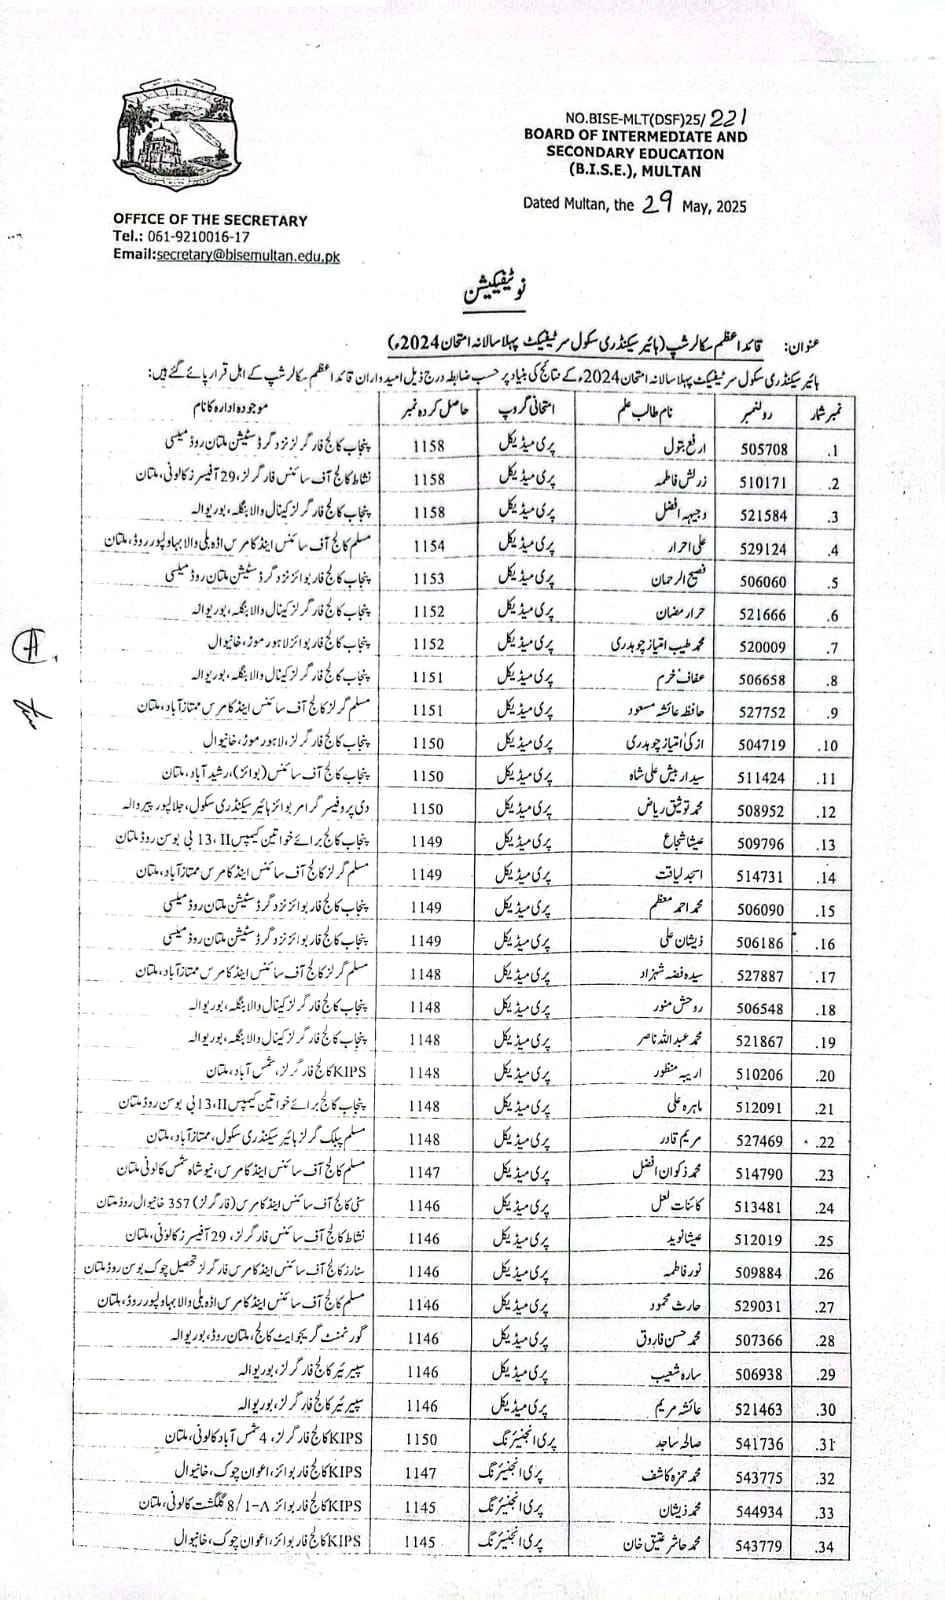 NO.BISE-MLT(DSF)25/221
BOARD OF INTERMEDIATE AND
SECONDARY EDUCATION
(B.I.S.E.), MULTAN
Dated Multan, the 29 May, 2025
OFFICE OF THE SECRETARY
Tel.: 061-9210016-17
Email:secretary@bisemultan.edu.pk
نوٹیفکیشن
عنوان: قائداعظم سکالرشپ (ہائیر سیکنڈری سکول سرٹیفکیٹ پہلا سالانہ امتحان 2024ء)
ہائیر سیکنڈری سکول سرٹیفکیٹ پہلا سالانہ امتحان 2024ء کے نتائج کی بنیاد پر حسب ضابطہ درج ذیل امیدواران قائداعظم سکالرشپ کے اہل قرار پائے گئے ہیں:
نمبر شمار رولنمبر نام طالب علم امتحانی گروپ حاصل کردہ نمبر موجودہ ادارہ کا نام
1. 505708 ارفع بتول پری میڈیکل 1158 پنجاب کالج فار گرلز نزد گرڈ سٹیشن ملتان روڈ میلسی
2. 510171 زرلش فاطمہ پری میڈیکل 1158 نشاط کالج آف سائنس فار گرلز، 29 آفیسرز کالونی، ملتان
3. 521584 وجیہہ افضل پری میڈیکل 1158 پنجاب کالج فار گرلز کینال والا بنگلہ، بوریوالہ
4. 529124 علی احرار پری میڈیکل 1154 مسلم کالج آف سائنس اینڈ کامرس اڈہ بلی والا بہاولپور روڈ، ملتان
5. 506060 فصیح الرحمان پری میڈیکل 1153 پنجاب کالج فار بوائز نزد گرڈ سٹیشن ملتان روڈ میلسی
6. 521666 حرا رمضان پری میڈیکل 1152 پنجاب کالج فار گرلز کینال والا بنگلہ، بوریوالہ
7. 520009 محمد طیب امتیاز چوہدری پری میڈیکل 1152 پنجاب کالج فار بوائز لاہور موڑ، خانیوال
8. 506658 عفاف خرم پری میڈیکل 1151 پنجاب کالج فار گرلز کینال والا بنگلہ، بوریوالہ
9. 527752 حافظہ عائشہ مسعود پری میڈیکل 1151 مسلم گرلز کالج آف سائنس اینڈ کامرس ممتاز آباد، ملتان
10. 504719 ازکیٰ امتیاز چوہدری پری میڈیکل 1150 پنجاب کالج فار گرلز، لاہور موڑ، خانیوال
11. 511424 سید اربیش علی شاہ پری میڈیکل 1150 پنجاب کالج آف سائنس (بوائز)، رشید آباد، ملتان
12. 508952 محمد توثیق ریاض پری میڈیکل 1150 دی پروفیسر گرامر بوائز ہائیر سیکنڈری سکول، جلالپور پیر والہ
13. 509796 عیشا شجاع پری میڈیکل 1149 پنجاب کالج برائے خواتین کیمپس II، 13 بی بوسن روڈ ملتان
14. 514731 اسجد لیاقت پری میڈیکل 1149 مسلم گرلز کالج آف سائنس اینڈ کامرس ممتاز آباد، ملتان
15. 506090 محمد احمد معظم پری میڈیکل 1149 پنجاب کالج فار بوائز نزد گرڈ سٹیشن ملتان روڈ میلسی
16. 506186 ذیشان علی پری میڈیکل 1149 پنجاب کالج فار بوائز نزد گرڈ سٹیشن ملتان روڈ میلسی
17. 527887 سیدہ فضہ شہزاد پری میڈیکل 1148 مسلم گرلز کالج آف سائنس اینڈ کامرس ممتاز آباد، ملتان
18. 506548 روحش منور پری میڈیکل 1148 پنجاب کالج فار گرلز کینال والا بنگلہ، بوریوالہ
19. 521867 محمد عبداللہ ناصر پری میڈیکل 1148 پنجاب کالج فار گرلز کینال والا بنگلہ، بوریوالہ
20. 510206 اریبہ منظور پری میڈیکل 1148 KIPS کالج فار گرلز، شمس آباد، ملتان
21. 512091 ماہرہ علی پری میڈیکل 1148 پنجاب کالج برائے خواتین کیمپس II، 13 بی بوسن روڈ ملتان
22. 527469 مریم قادر پری میڈیکل 1148 مسلم پبلک گرلز ہائیر سیکنڈری سکول، ممتاز آباد، ملتان
23. 514790 محمد ذکوان افضل پری میڈیکل 1147 مسلم کالج آف سائنس اینڈ کامرس، نیو شاہ شمس کالونی ملتان
24. 513481 کائنات لعل پری میڈیکل 1146 سٹی کالج آف سائنس اینڈ کامرس (فار گرلز) 357 خانیوال روڈ ملتان
25. 512019 عیشا نوید پری میڈیکل 1146 نشاط کالج آف سائنس فار گرلز، 29 آفیسرز کالونی، ملتان
26. 509884 نور فاطمہ پری میڈیکل 1146 سٹارز کالج آف سائنس اینڈ کامرس فار گرلز تحصیل چوک بوسن روڈ ملتان
27. 529031 حارث محمود پری میڈیکل 1146 مسلم کالج آف سائنس اینڈ کامرس اڈہ بلی والا بہاولپور روڈ، ملتان
28. 507366 محمد حسن فاروق پری میڈیکل 1146 گورنمنٹ گریجوایٹ کالج، ملتان روڈ، بوریوالہ
29. 506938 سارہ شعیب پری میڈیکل 1146 سپیرئیر کالج فار گرلز، بوریوالہ
30. 521463 عائشہ مریم پری میڈیکل 1146 سپیرئیر کالج فار گرلز، بوریوالہ
31. 541736 صالحہ ساجد پری انجنیئرنگ 1150 KIPS کالج فار گرلز، 4 شمس آباد کالونی، ملتان
32. 543775 محمد حمزہ کاشف پری انجنیئرنگ 1147 KIPS کالج فار بوائز، اعوان چوک، خانیوال
33. 544934 محمد ذیشان پری انجنیئرنگ 1145 KIPS کالج فار بوائز 8/1-A گلگشت کالونی، ملتان
34. 543779 محمد حاشر عتیق خان پری انجنیئرنگ 1145 KIPS کالج فار بوائز، اعوان چوک، خانیوال